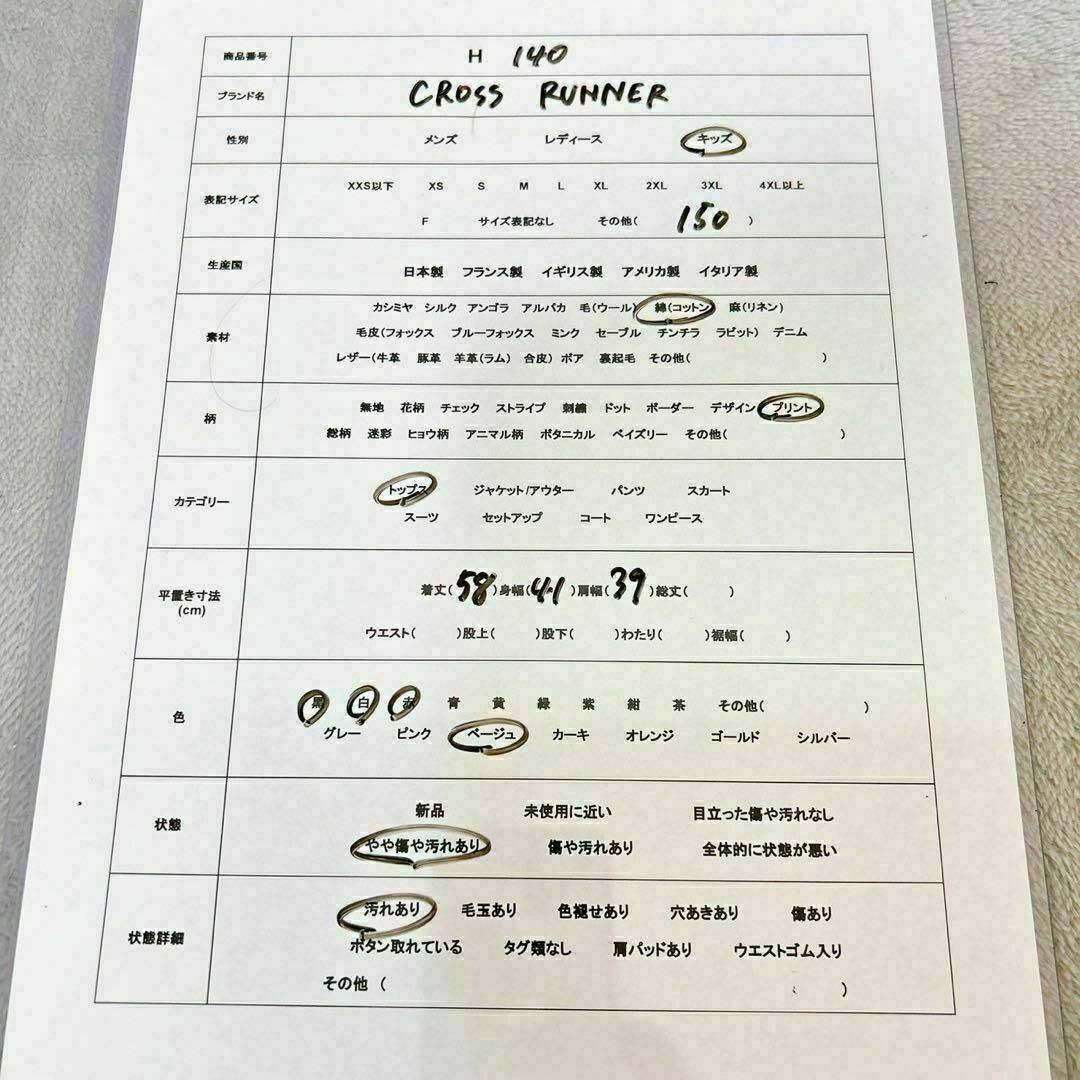 商品番号 H 140
ブランド名 CROSS RUNNER
性別 メンズ レディース キッズ
表記サイズ XXS以下 XS S M L XL 2XL 3XL 4XL以上
F サイズ表記なし その他( 150 )
生産国 日本製 フランス製 イギリス製 アメリカ製 イタリア製
素材 カシミヤ シルク アンゴラ アルパカ 毛(ウール) 綿(コットン) 麻(リネン)
毛皮(フォックス ブルーフォックス ミンク セーブル チンチラ ラビット) デニム
レザー(牛革 豚革 羊革(ラム) 合皮) ボア 裏起毛 その他( )
柄 無地 花柄 チェック ストライプ 刺繍 ドット ボーダー デザイン プリント
総柄 迷彩 ヒョウ柄 アニマル柄 ボタニカル ペイズリー その他( )
カテゴリー トップス ジャケット/アウター パンツ スカート
スーツ セットアップ コート ワンピース
平置き寸法 (cm) 着丈( 58 )身幅( 41 )肩幅( 39 )総丈( )
ウエスト( )股上( )股下( )わたり( )裾幅( )
色 黒 白 赤 青 黄 緑 紫 紺 茶 その他( )
グレー ピンク ベージュ カーキ オレンジ ゴールド シルバー
状態 新品 未使用に近い 目立った傷や汚れなし
やや傷や汚れあり 傷や汚れあり 全体的に状態が悪い
状態詳細 汚れあり 毛玉あり 色褪せあり 穴あきあり 傷あり
ボタン取れている タグ類なし 肩パッドあり ウエストゴム入り
その他 ( )